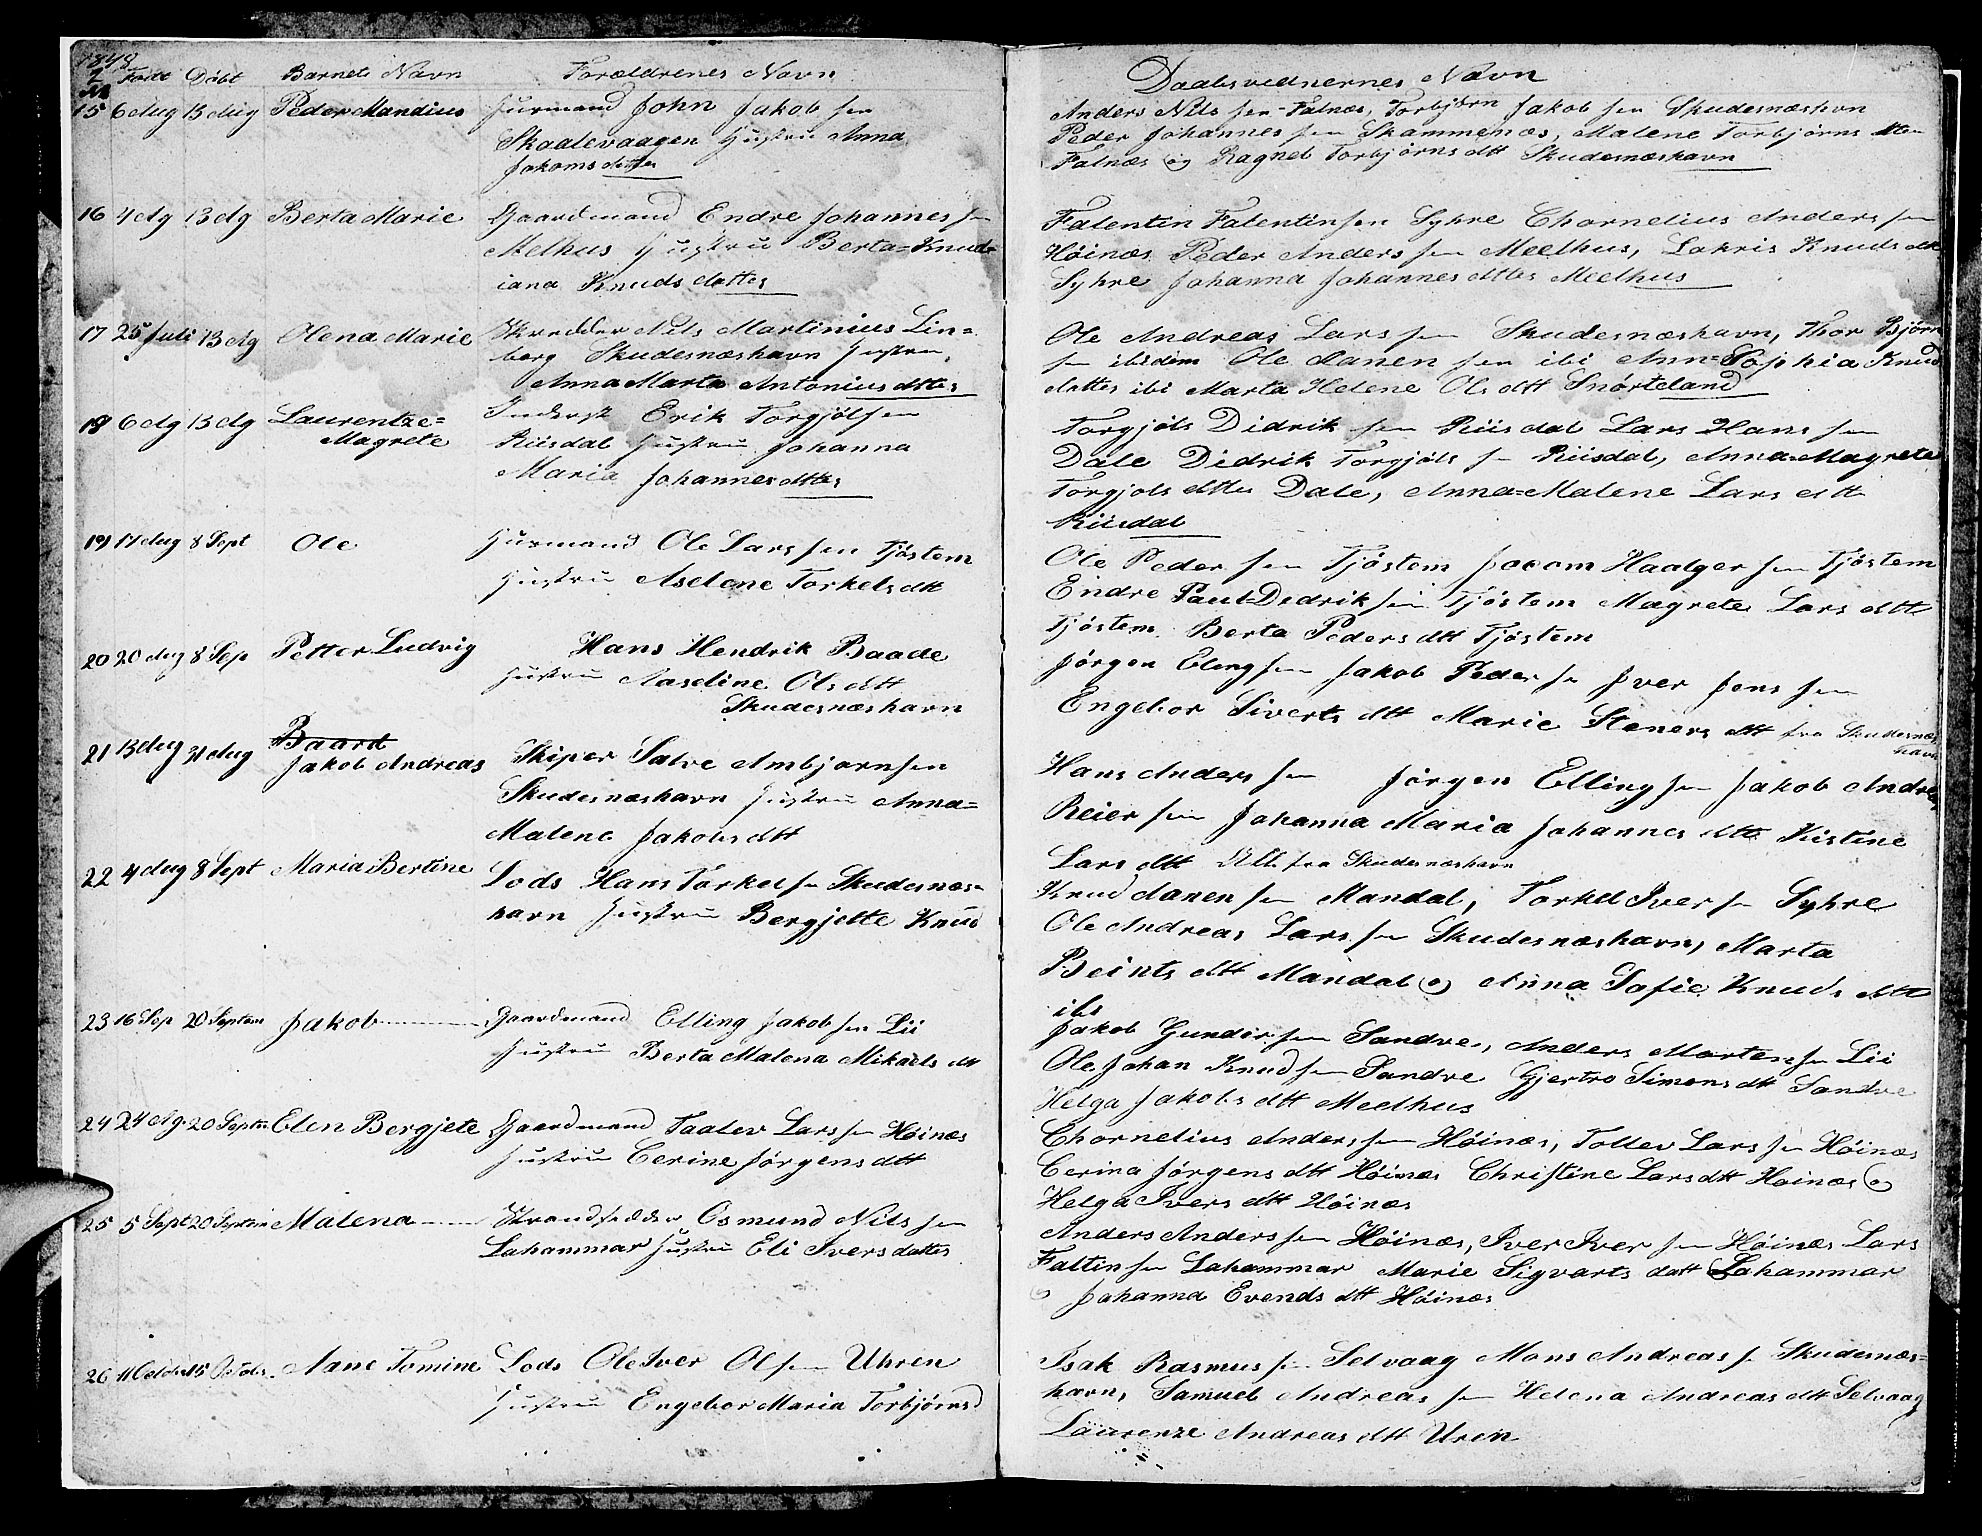 1848
2
No Født Døbt Barnets Navn Forældrenes Navn
15 6 Aug 13 Aug Peder Mandius Husmand John Jakobsen
Skaalevaagen Hustru Anna
Jakomsdatter
16 4 Ag 13 Ag Berta Marie Gaardmand Endre Johannessen
Melhus Hustru Berta=Knud=
iana Knudsdatter
17 25 Juli 13 Ag Olena Marie Skredder Nils Martinius Lin=
berg Skudesnæshavn Hustru,
Anna Marta Antoniusdtter
18 6 Ag 13 Ag Laurentze= Inderst Erik Torgjølsen
Magrete Riisdal Hustru Johanna
Maria Johannesdtter
19 17 Aug 8 Sept Ole Husmand Ole Larssen Tjøstem
Hustru Aselene Torkelsdtt
20 20 Aug 8 Sep Petter Ludvig Hans Hendrik Baade
Hustru Aaseline Olsdtt
Skudesnæshavn
Baard
21 13 Aug 31 Aug Jakob Andreas Skiper Salve Ambjørnsen
Skudesnæshavn Hustru Anna=
Malene Jakobsdtt
22 4 Aug 8 Sept Maria Bertine Lods Hans Torkelsen Skudesnæs=
havn Hustru Bergjette Knud
23 16 Sep 20 Septem Jakob Gaardmand Elling Jakobsen Lii
Hustru Berta Malena Mikaelsdtt
24 24 Ag 20 Septm Elen Bergjete Gaardmand Taalev Larssen Høinæs
Hustru Cerine Jørgensdtt
25 5 Sept 20 Septm Malena Strandsidder Osmund Nilssen
Lahammar Hustru Eli Iversdatter
26 11 Octob 15 Octob. Aane Tomine Lods Ole Iver Olsen Uhren
Hustru Engebor Maria Torbjørnsd
Daabsvidnernes Navn
Anders Nilssen Falnæs, Torbjørn Jakobsen Skudesnæshvn
Peder Johannessen Skammenæs, Malene Torbjørnsdtter
Falnæs og Ragnel Torbjørnsdtt Skudesnæshavn
Falentin Falentinsen Syhre Chornelius Anderssen
Høinæs Peder Anderssen Meelhus, Lakris Knudsdtt
Syhre Johanna Johannesdtter Meelhus
Ole Andreas Larssen Skudesnæshavn, Thor Bjørn
sen ibidem Ole Danensen ibi Ann=Sophia Knud
datter ibi Marta Helene Olsdtt Snørteland
Torgjøls Didriksen Riisdal Lars Hanssen
Dale Didrik Torgjølssen Riisdal, Anna=Magrete
Torgjolsdtter Dale, Anna=Malene Larsdtt
Riisdal
Ole Pedersen Tjøstem Jocom Haalgersen Tjøstem
Endre Paul Dedriksen Tjøstem Magrete Larsdtt
Tjøstem. Berta Pedersdtt Tjøstem
Jørgen Elingsen Jakob Pedersen Iver Jenssen
Engebor Sivertsdtt Marie Stenersdtt fra Skudesnæs
havn
Hans Anderssen Jørgen Ellingsen Jakob Andreas
Reiersen Johanna Maria Johannesdtt Kistine
Larsdtt Alle fra Skudesnæshavn
Knud Danensen Mandal, Torkel Iversen Syhre
Ole Andreas Larssen Skudesnæshavn, Marta
Beintsdtt Mandal og Anna Sofie Knudsdtt
ibi
Jakob Gundersen Sandve, Anders Mortensen Lii
Ole Johan Knudsen Sandve Gjertro Simonsdtt Sandve
Helga Jakobsdtt Meelhus
Chornelius Anderssen Høinæs, Tollev Larssen Høinæs
Cerina Jørgensdtt Høinæs Christine Larsdtt Høinæs og
Helga Iversdtt Høinæs
Anders Anderssen Høinæs, Iver Iversen Høinæs Lars
Faltinsen Lahammar Marie Sigvartsdatt Lahammar
og Johanna Evendsdtt Høinæs
Isak Rasmussen Selvaag Mons Andreassen Skudesnæs=
havn, Samuel Andreassen Helena Andreasdtt Selvaag
Laurenze Andreasdtt Uren